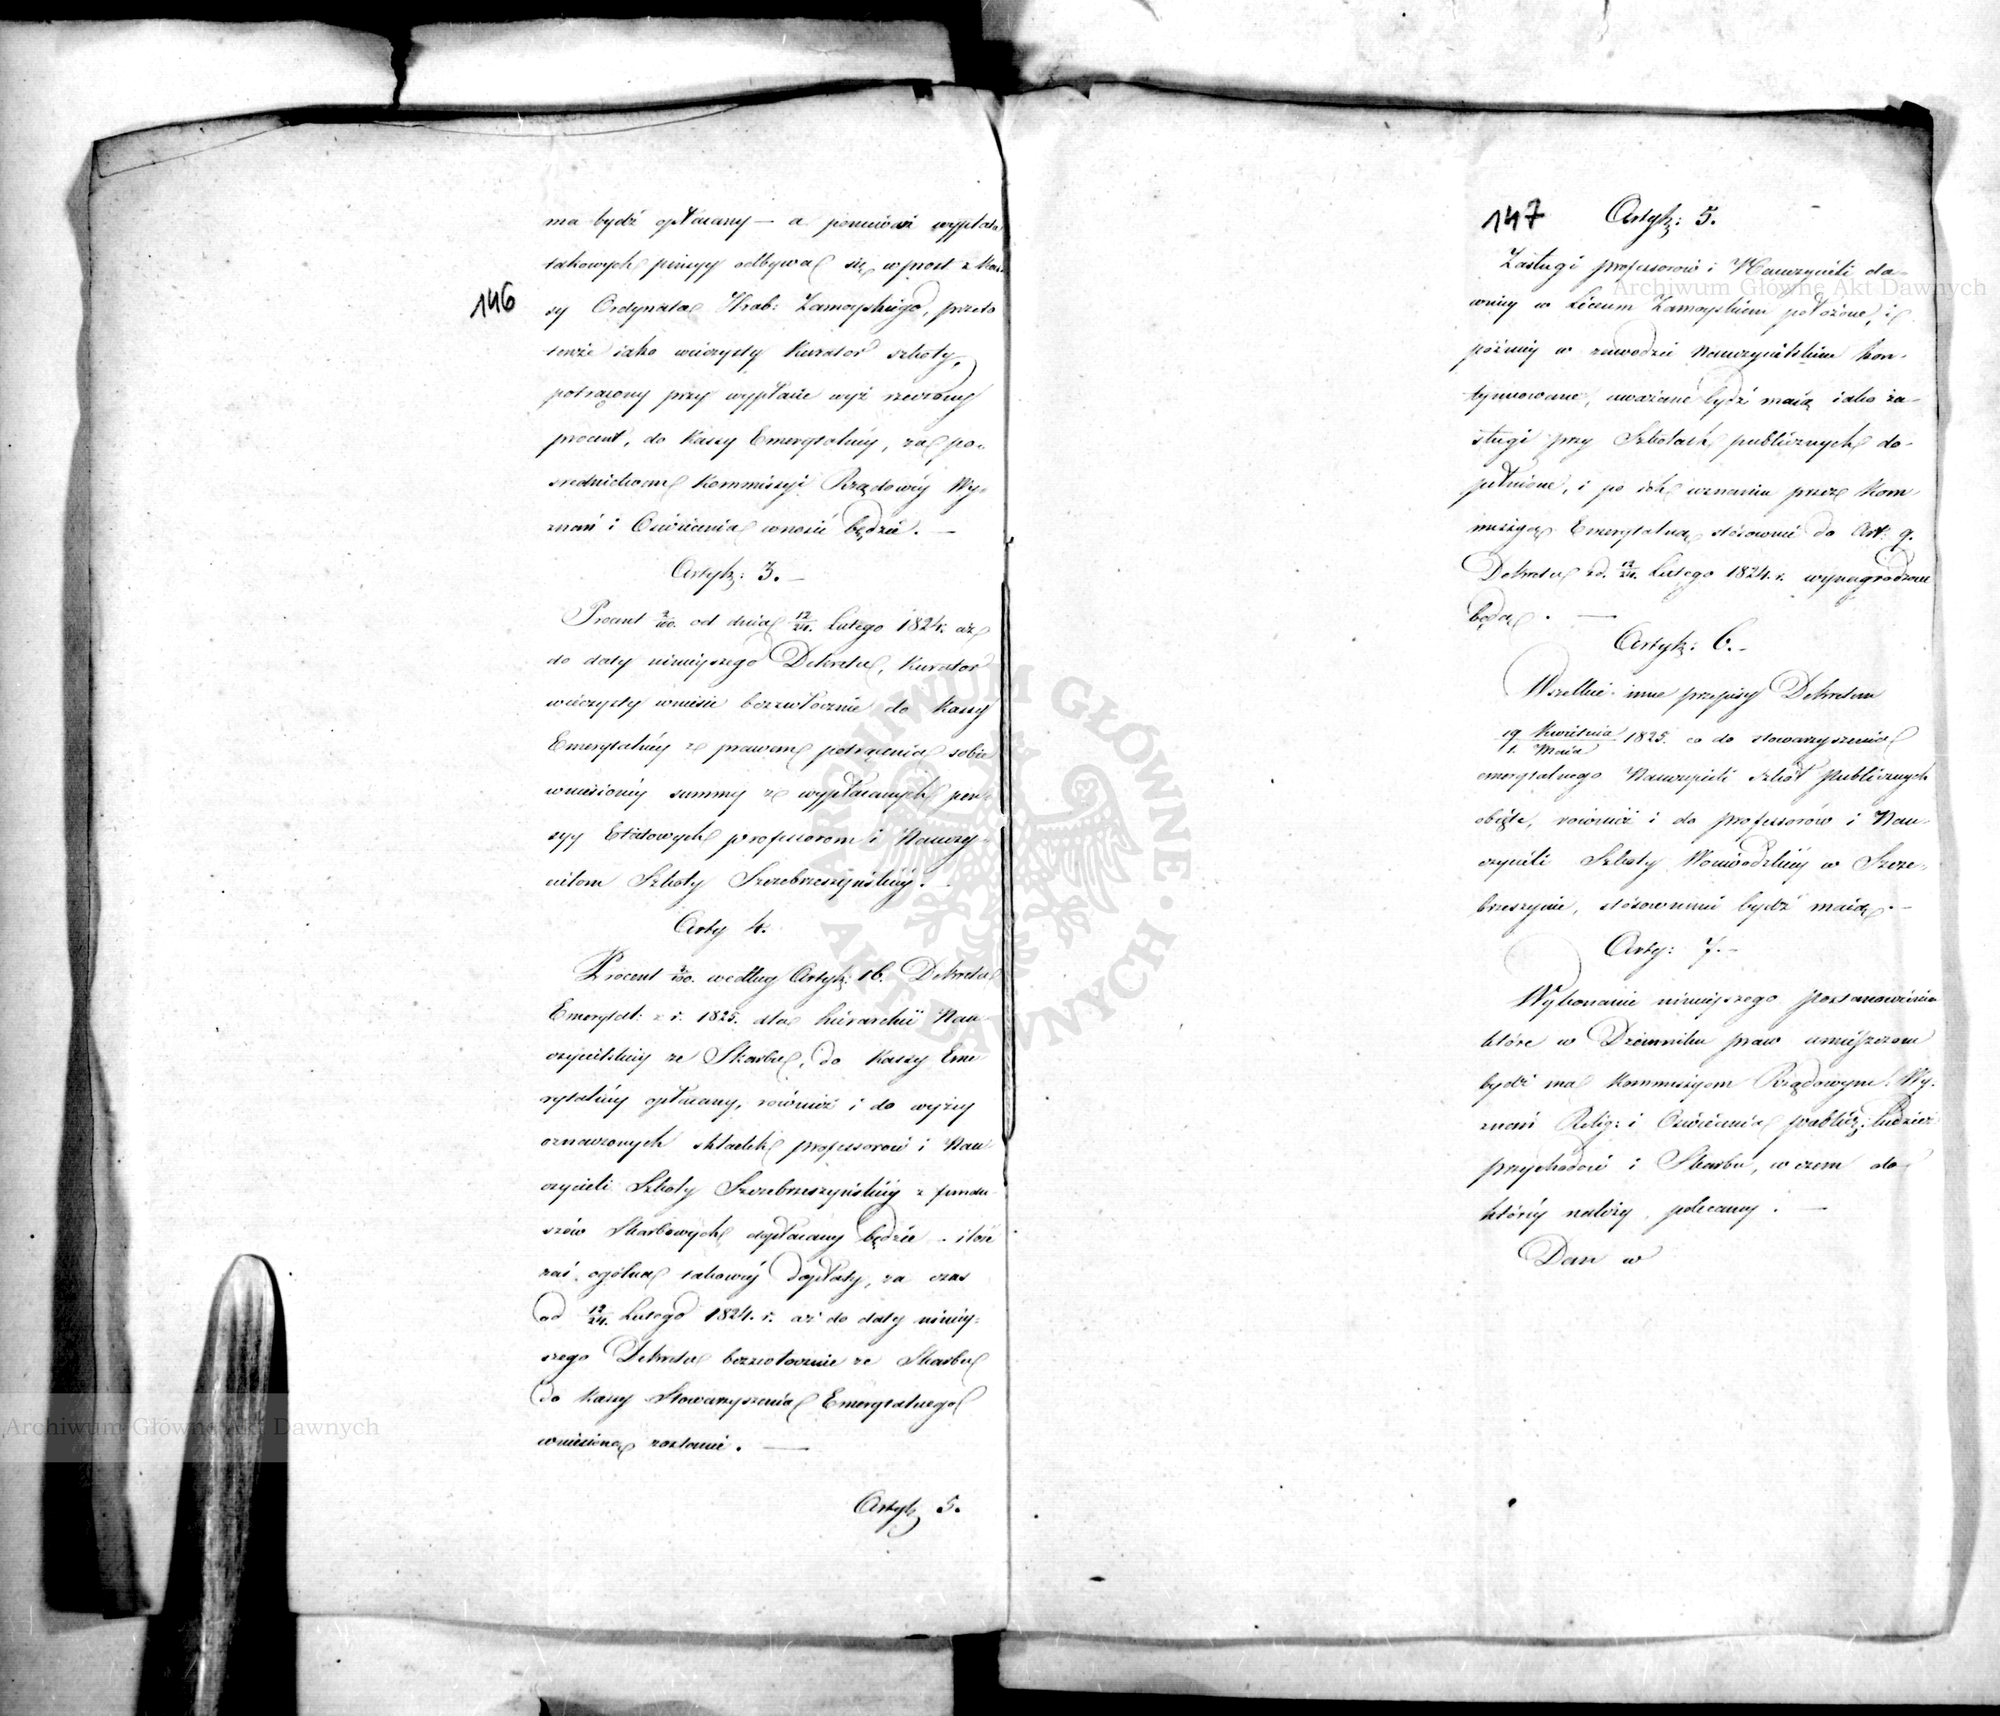 146
ma bydź opłacany — a ponieważ wypłata
takowych pensyy odbywa się wprost z Kas-
sy Ordynata Hrab: Zamoyskiego, przeto
tenże iako wieczysty Kurator szkoły,
potrącony przy wypłacie wyż rzeczony
procent, do Kassy Emerytalnéy, za po-
srednictwem Kommissyi Rządowéy Wy-
znań i Oświecenia wnosić będzie. —
Artyk: 3. —
Procent 2/100. od dnia 12/24. Lutego 1824r. aż
do daty ninieyszego Dekretu, Kurator
wieczysty wniesie bezzwłocznie do Kassy
Emerytalnéy z prawem potrącenia sobie
wniesionéy summy z wypłacanych pen-
syy Etatowych professorom i Nauczy-
cielom Szkoły Szczebrzeszyńskiéy. —
Arty 4.
Procent /100. według Artyk: 16. Dekretu
Emerytal: z r. 1825. dla hierarchii Nau-
czycielskiéy ze Skarbu, do Kassy Eme
rytalnéy opłacany, również i do wyżéy
oznaczonych składek professorów i Nau
czycieli Szkoły Szczebrzeszyńskiéy z fundu-
szów Skarbowych dopłacany będzie — ilość
zaś ogólna takowéy dopłaty, za czas
od 12/24. Lutego 1824. r. aż do daty niniey-
szego Dekretu bezzwłocznie ze Skarbu
do Kassy Stowarzyszenia Emerytalnego
wniesioną zostanie. —
Artyk 5.
147
Artyk: 5.
Zasługi professorów i Nauczycieli da-
wniéy w Liceum Zamoyskiem położone, i
późniéy w zawodzie Nauczycielskim kon-
tynuowane, uważane bydź maią iako za-
sługi przy Szkołach publicznych do-
pełnione, i po ich uznaniu przez Kom
missyę Emerytalną stósownie do Art: 9.
Dekretu z d. 12/24. Lutego 1824. r. wynagrodzone
będą. —
Artyk: 6. -
Wszelkie inne przepisy Dekretem
19 Kwietnia/1. Maia 1825. co do stowarzyszenia
emerytalnego Nauczycieli szkół publicznych
obięte, również i do professorów i Nau-
czycieli Szkoły Woiewódzkiéy w Szcze-
brzeszynie, stósowanemi bydź maią. —
Arty: 7. -
Wykonanie ninieyszego postanowienia
które w Dzienniku praw umieszczone
bydź ma Kommissyom Rządowym: Wy-
znań Relig: i Oświecenia public: tudzież
przychodów i Skarbu, w czem do
któréy należy, polecamy. —
Dan w
Archiwum Główne Akt Dawnych
Archiwum Główne Akt Dawnych
ARCHIWUM GŁÓWNE AKT DAWNYCH